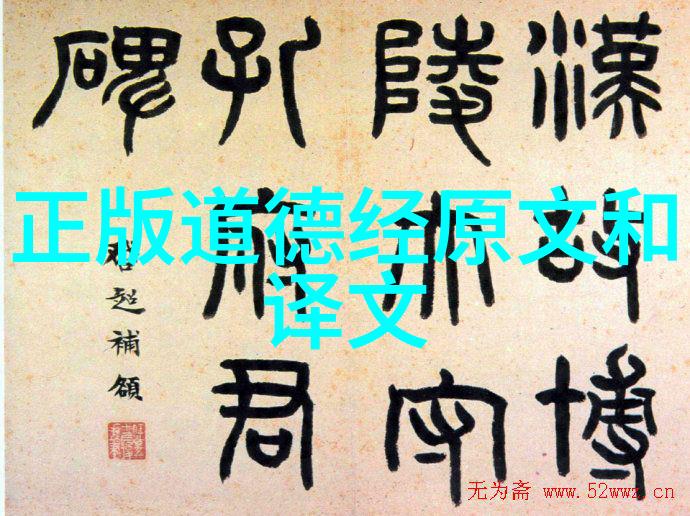 正版道德经原文和
译文
漢故博
陵太守
孔府君
碑
超補額
无为斋 www.52wwz.cn